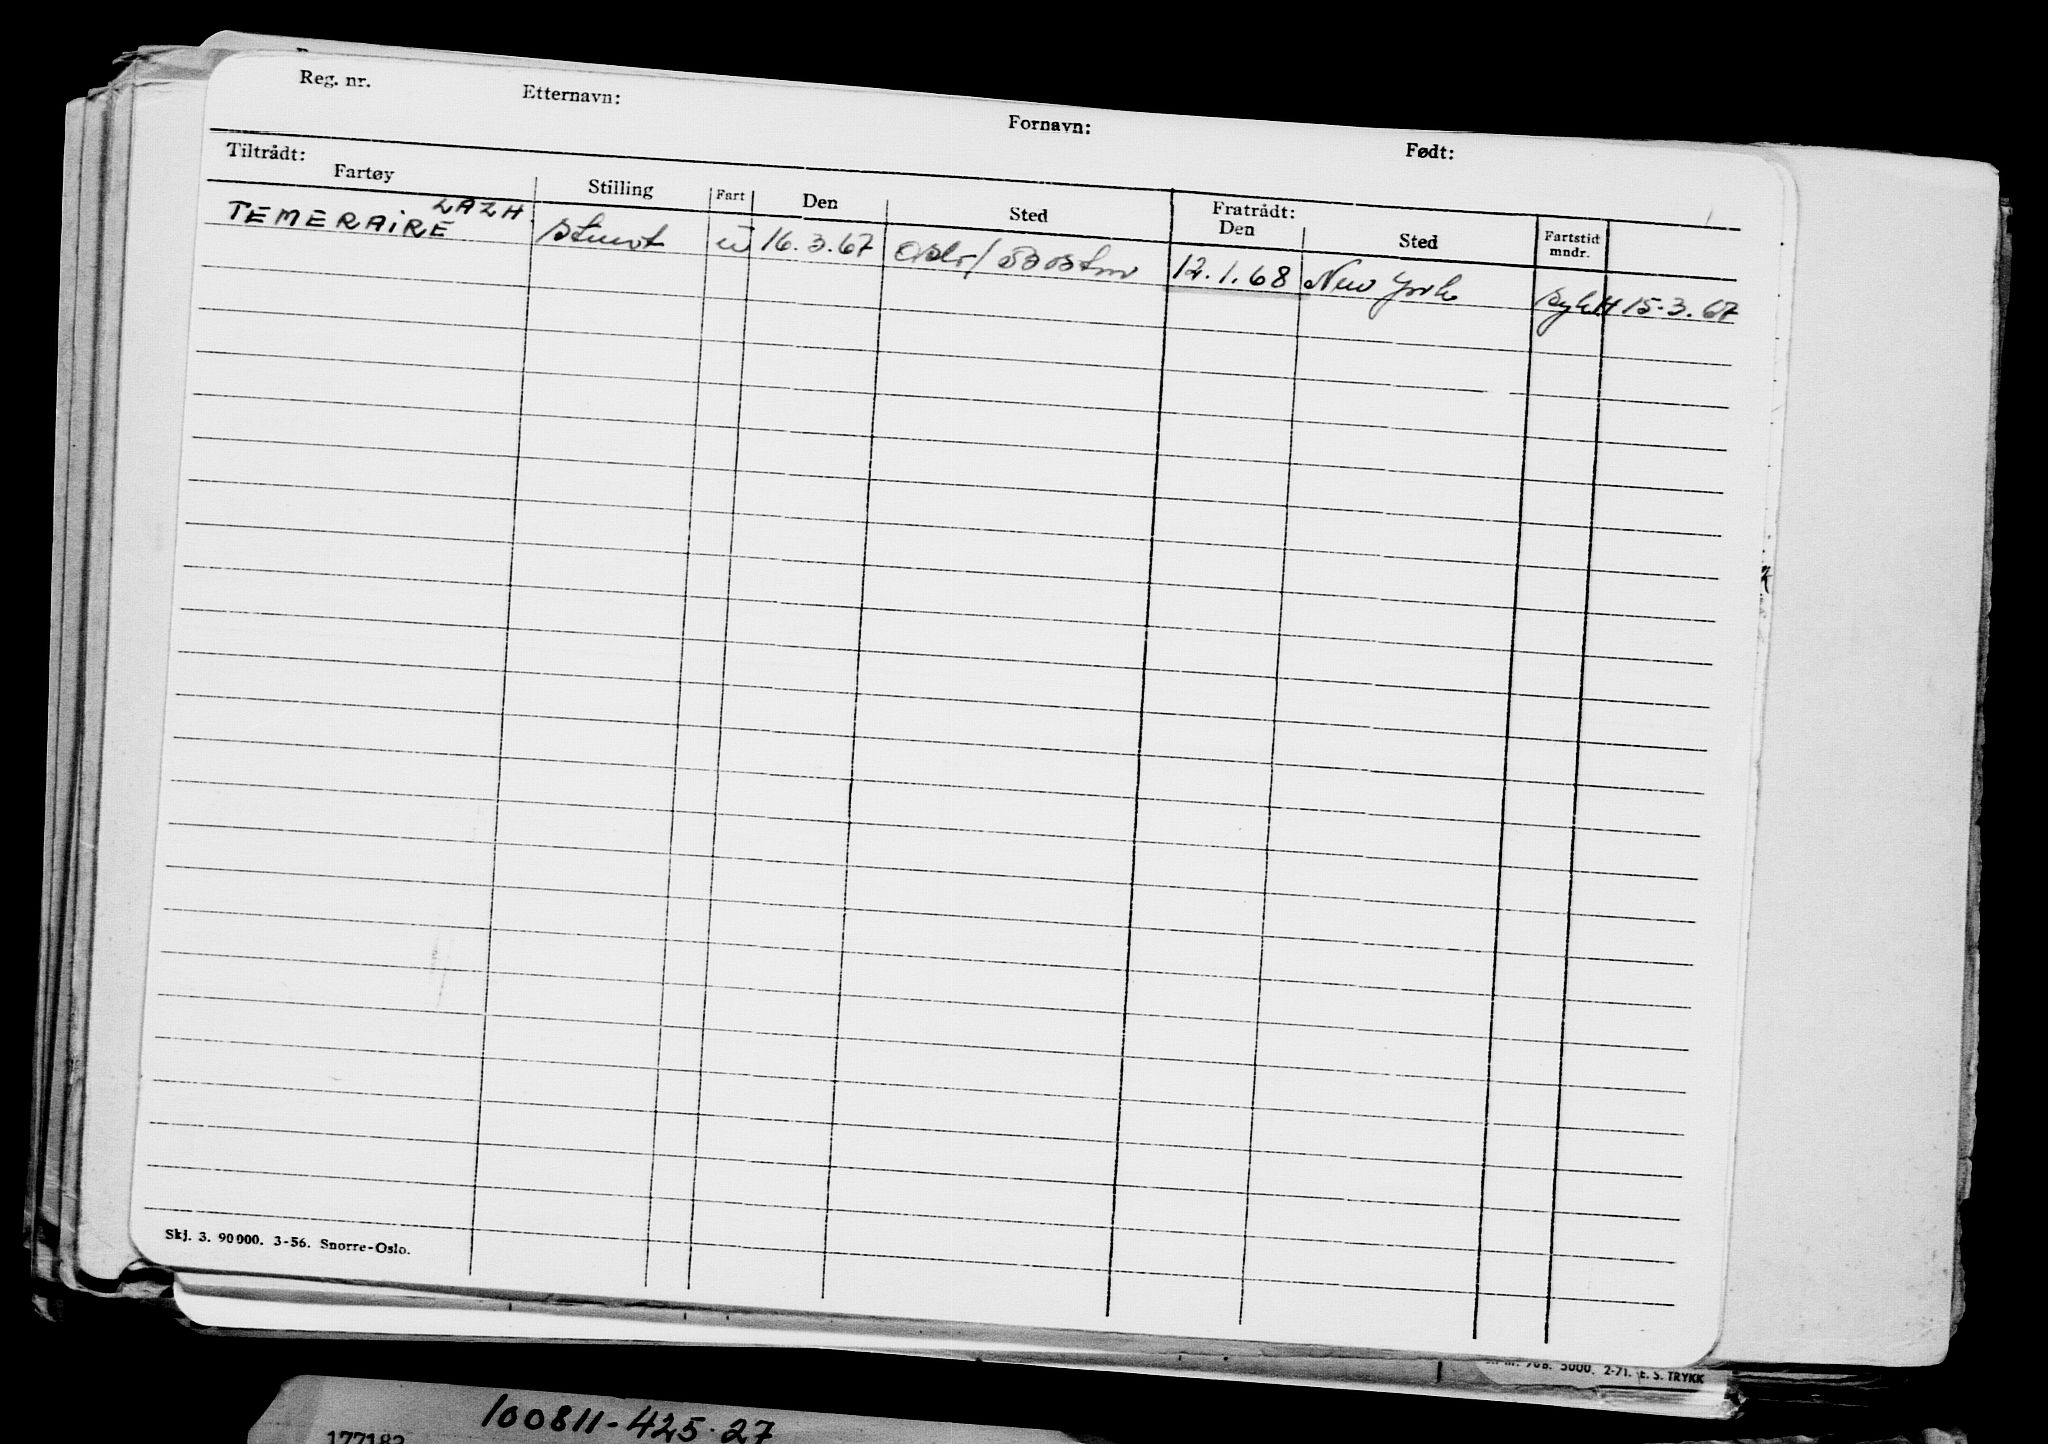 Reg. nr. Etternavn: Fornavn: Født:
Tiltrådt: Fratrådt:
Fartøy Stilling Fart Den Sted Den Sted Fartstid mndr.
LAZH.
TEMERAIRE Stuert u 16.3.67 Oslo/Boston 12.1.68 New York 15.3.67
Skj. 3. 90000. 3-56. Snorre-Oslo.
5000. 2-71. E. S. TRYKK
100811-425.27
177182